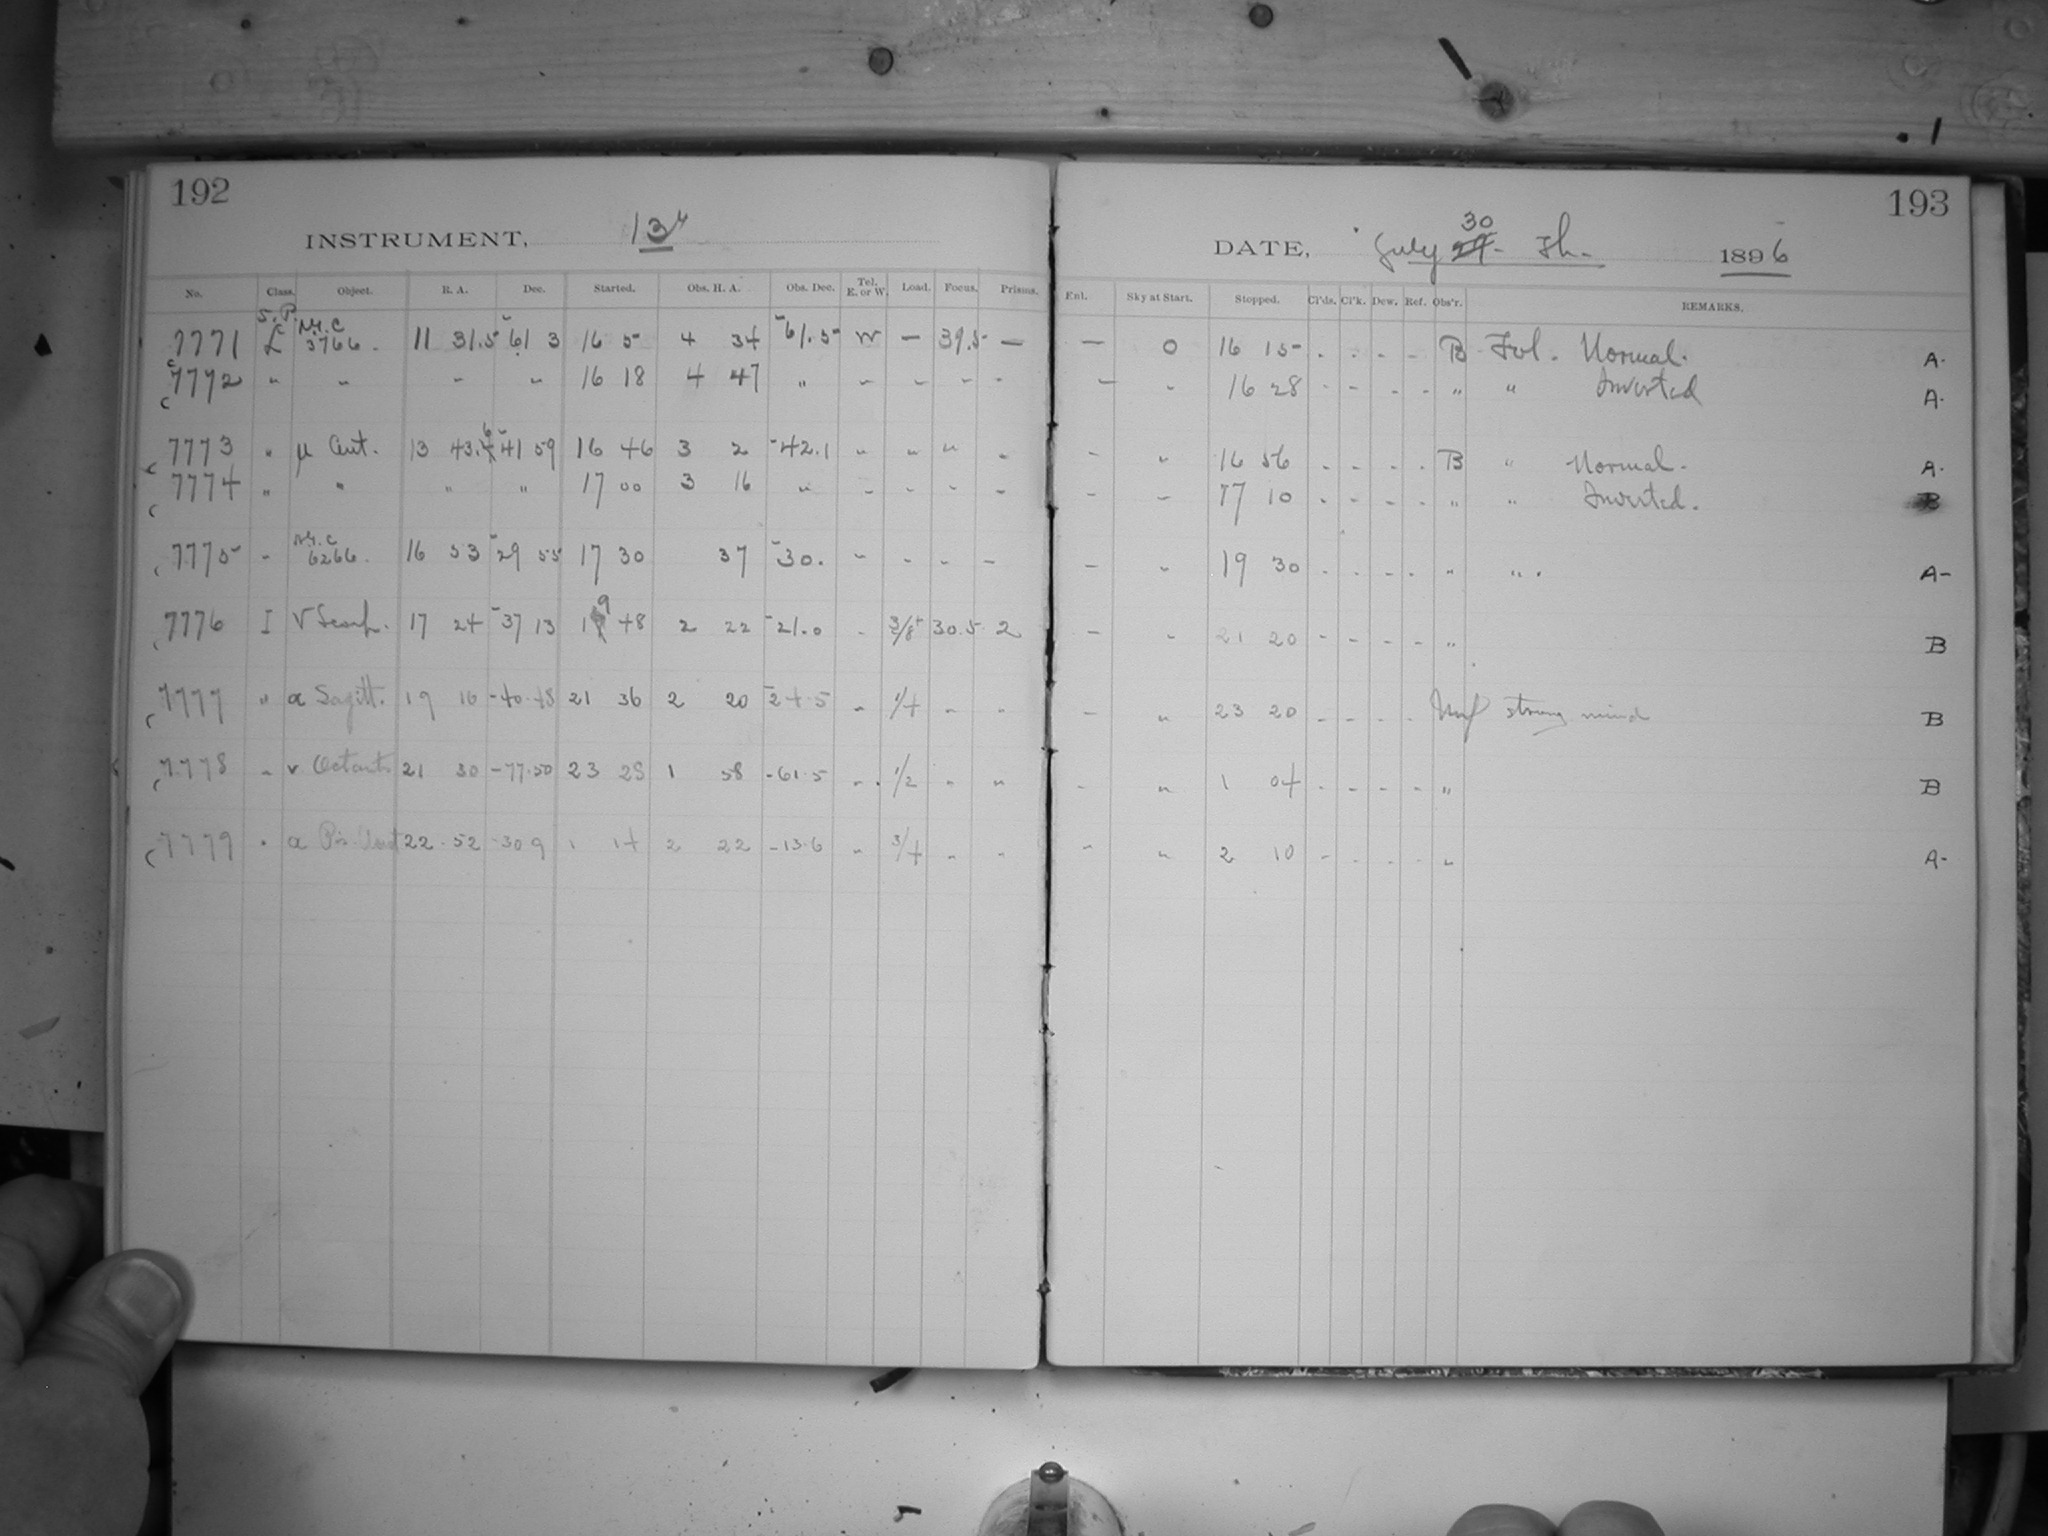 192
INSTRUMENT, 13"
No. Class. Object. R. A. Dec. Started. Obs. H. A. Obs. Dec. Tel. E. or W. Load. Focus. Prisms.
S.P.
7771 L N.G.C 3766. 11 31.5 -61 3 16 5 4 34 -61.5 W — 39.5 —
7772 " " " " 16 18 4 47 " " " " "
7773 " μ Cent. 13 43.6 -41 59 16 46 3 2 -42.1 " " " "
7774 " " " " 17 00 3 16 " " " " "
7775 " N.G.C 6266. 16 53 -29 55 17 30 37 -30. " " " "
7776 I ν Scorp. 17 24 -37 13 19 48 2 22 -21.0 " 3/8 30.5 2
7777 " α Sagitt. 19 16 -40.48 21 36 2 20 -24.5 " 1/4 " "
7778 " ν Octantis 21 30 -77.50 23 28 1 58 -61.5 " 1/2 " "
7779 " α Pis. Aust 22.52 -30 9 1 14 2 22 -13.6 " 3/4 " "
193
DATE, July 30 Th. 1896
Enl. Sky at Start. Stopped. Cl'ds. Cl'k. Dew. Ref. Obs'r. REMARKS.
— 0 16 15 - - - - B Fol. Normal. A.
— " 16 28 - - - - " " Inverted A.
- " 16 56 - - - - B " Normal. A.
- " 17 10 - - - - " " Inverted. B
- " 19 30 - - - - " " . A-
- " 21 20 - - - - " B
- " 23 20 - - - - strong wind B
- " 1 04 - - - - " B
- " 2 10 - - - - " A-